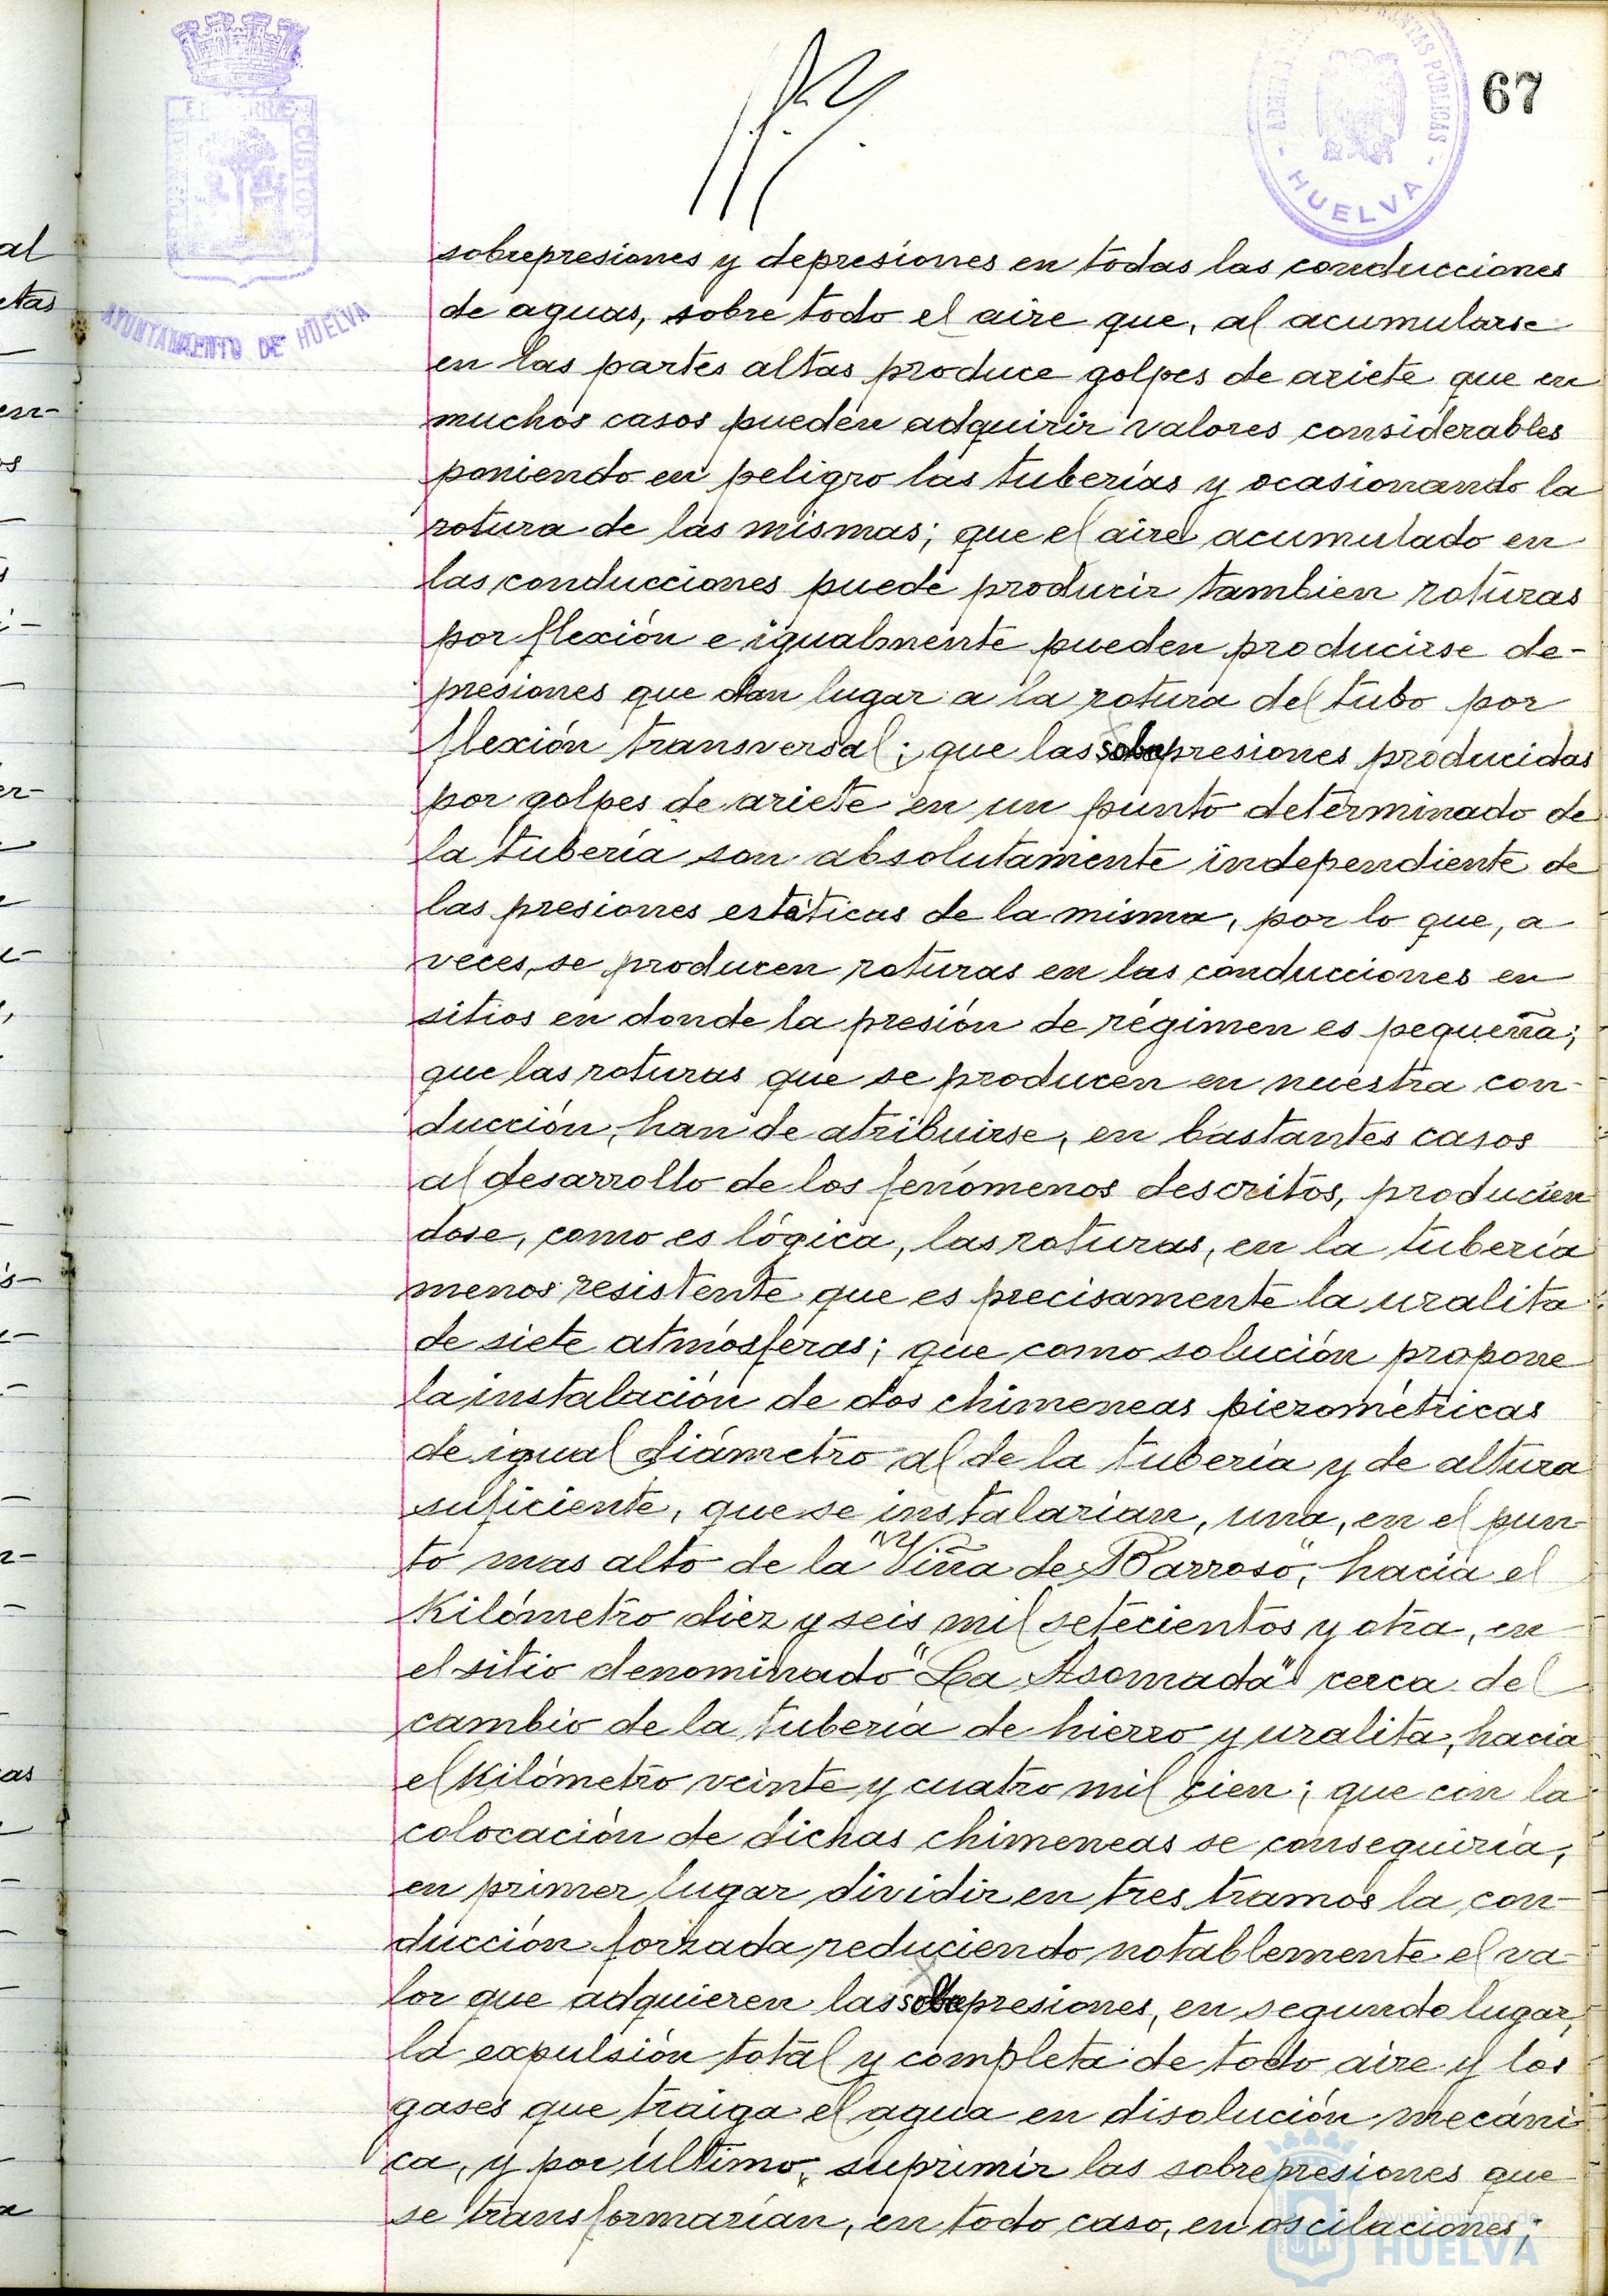 67
AYUNTAMIENTO DE HUELVA
HUELVA
sobrepresiones y depresiones en todas las conducciones
de aguas, sobre todo el aire que, al acumularse
en las partes altas produce golpes de ariete que en
muchos casos pueden adquirir valores considerables
poniendo en peligro las tuberías y ocasionando la
rotura de las mismas; que el aire acumulado en
las conducciones puede producir tambien roturas
por flexión e igualmente pueden producirse de-
presiones que dan lugar a la rotura del tubo por
flexión transversal; que las sobrepresiones producidas
por golpes de ariete en un punto determinado de
la tubería son absolutamente independiente de
las presiones estáticas de la misma, por lo que, a
veces, se producen roturas en las conducciones en
sitios en donde la presión de régimen es pequeña;
que las roturas que se producen en nuestra con-
ducción, han de atribuirse, en bastantes casos
al desarrollo de los fenómenos descritos, producien
dose, como es lógica, las roturas, en la tubería
menos resistente que es precisamente la uralita
de siete atmósferas; que como solución propone
la instalación de dos chimeneas piezométricas
de igual diámetro al de la tubería y de altura
suficiente, que se instalarían, una, en el pun-
to mas alto de la "Viña de Barroso", hacia el
Kilómetro diez y seis mil setecientos y otra, en
el sitio denominado "La Asomada" cerca del
cambio de la tubería de hierro y uralita, hacia
el Kilómetro veinte y cuatro mil cien; que con la
colocación de dichas chimeneas se conseguiría,
en primer lugar dividir en tres tramos la con-
ducción forzada reduciendo notablemente el va-
lor que adquieren las sobrepresiones, en segundo lugar,
la expulsión total y completa de todo aire y los
gases que traiga el agua en disolución mecáni-
ca, y por último, suprimir las sobrepresiones que
se transformarían, en todo caso, en oscilaciones;
Ayuntamiento de
HUELVA